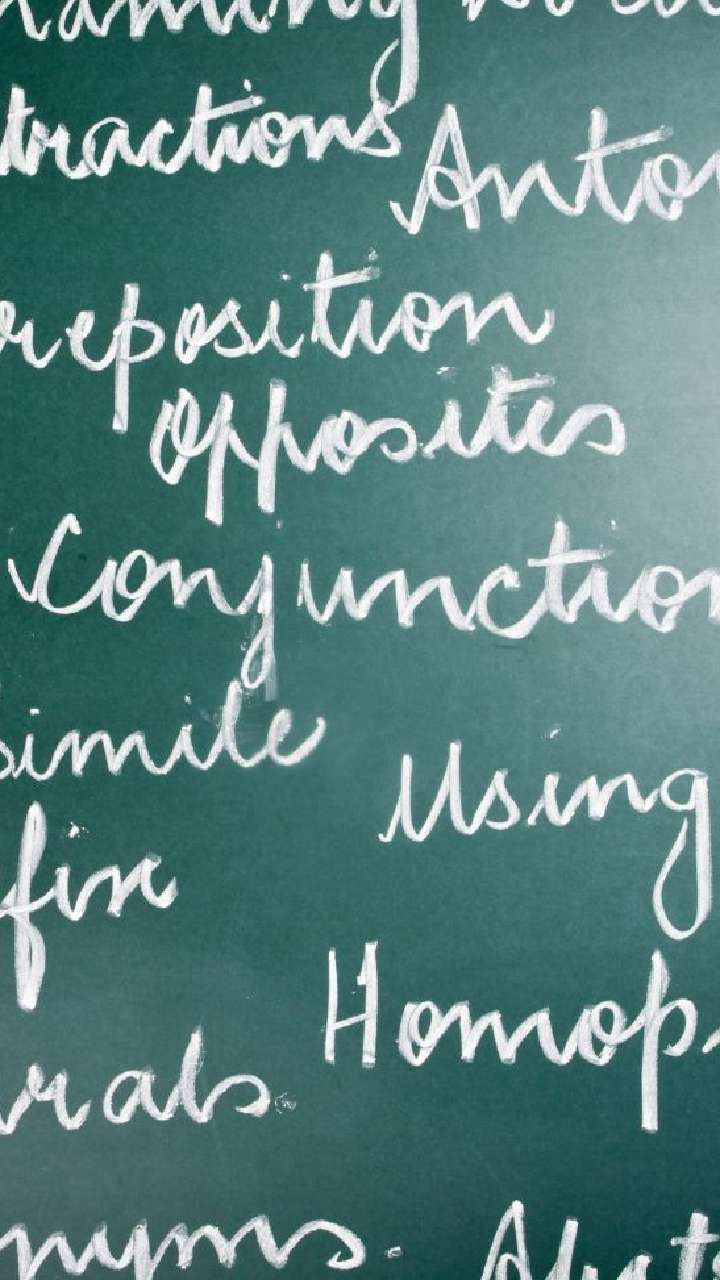 tractions Anto
reposition
opposites
Conjunction
simile
Using
fix
Homop
rals
nyms.